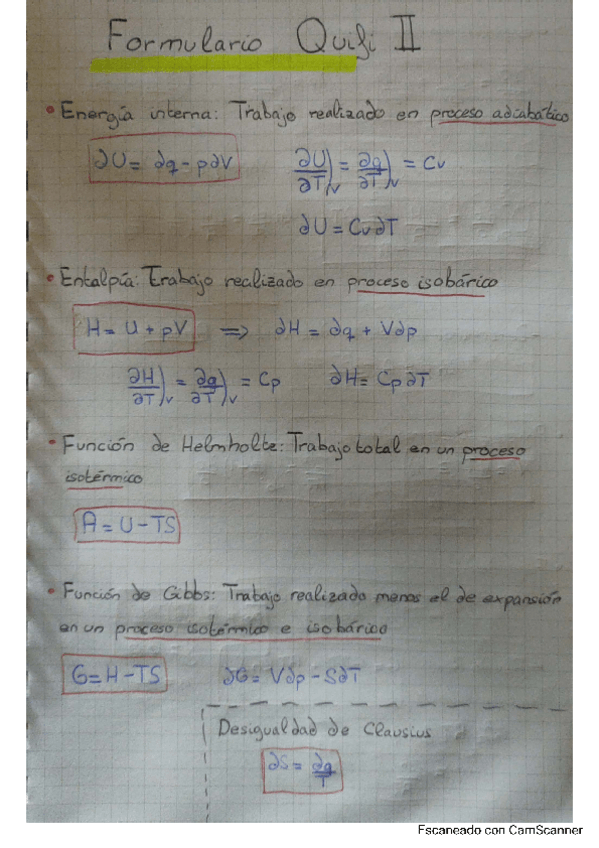 Formulario Quifi II
• Energía interna: Trabajo realizado en proceso adiabático
∂U = ∂q - p∂V    ∂U/∂T)v = ∂q/∂T)v = Cv
∂U = Cv∂T
• Entalpía: Trabajo realizado en proceso isobárico
H = U + pV ⇒ ∂H = ∂q + V∂p
∂H/∂T)v = ∂q/∂T)v = Cp    ∂H = Cp∂T
• Función de Helmholtz: Trabajo total en un proceso
isotérmico
A = U - TS
• Función de Gibbs: Trabajo realizado menos el de expansión
en un proceso isotérmico e isobárico
G = H - TS    ∂G = V∂p - S∂T
Desigualdad de Clausius
∂S = ∂q/T
Escaneado con CamScanner